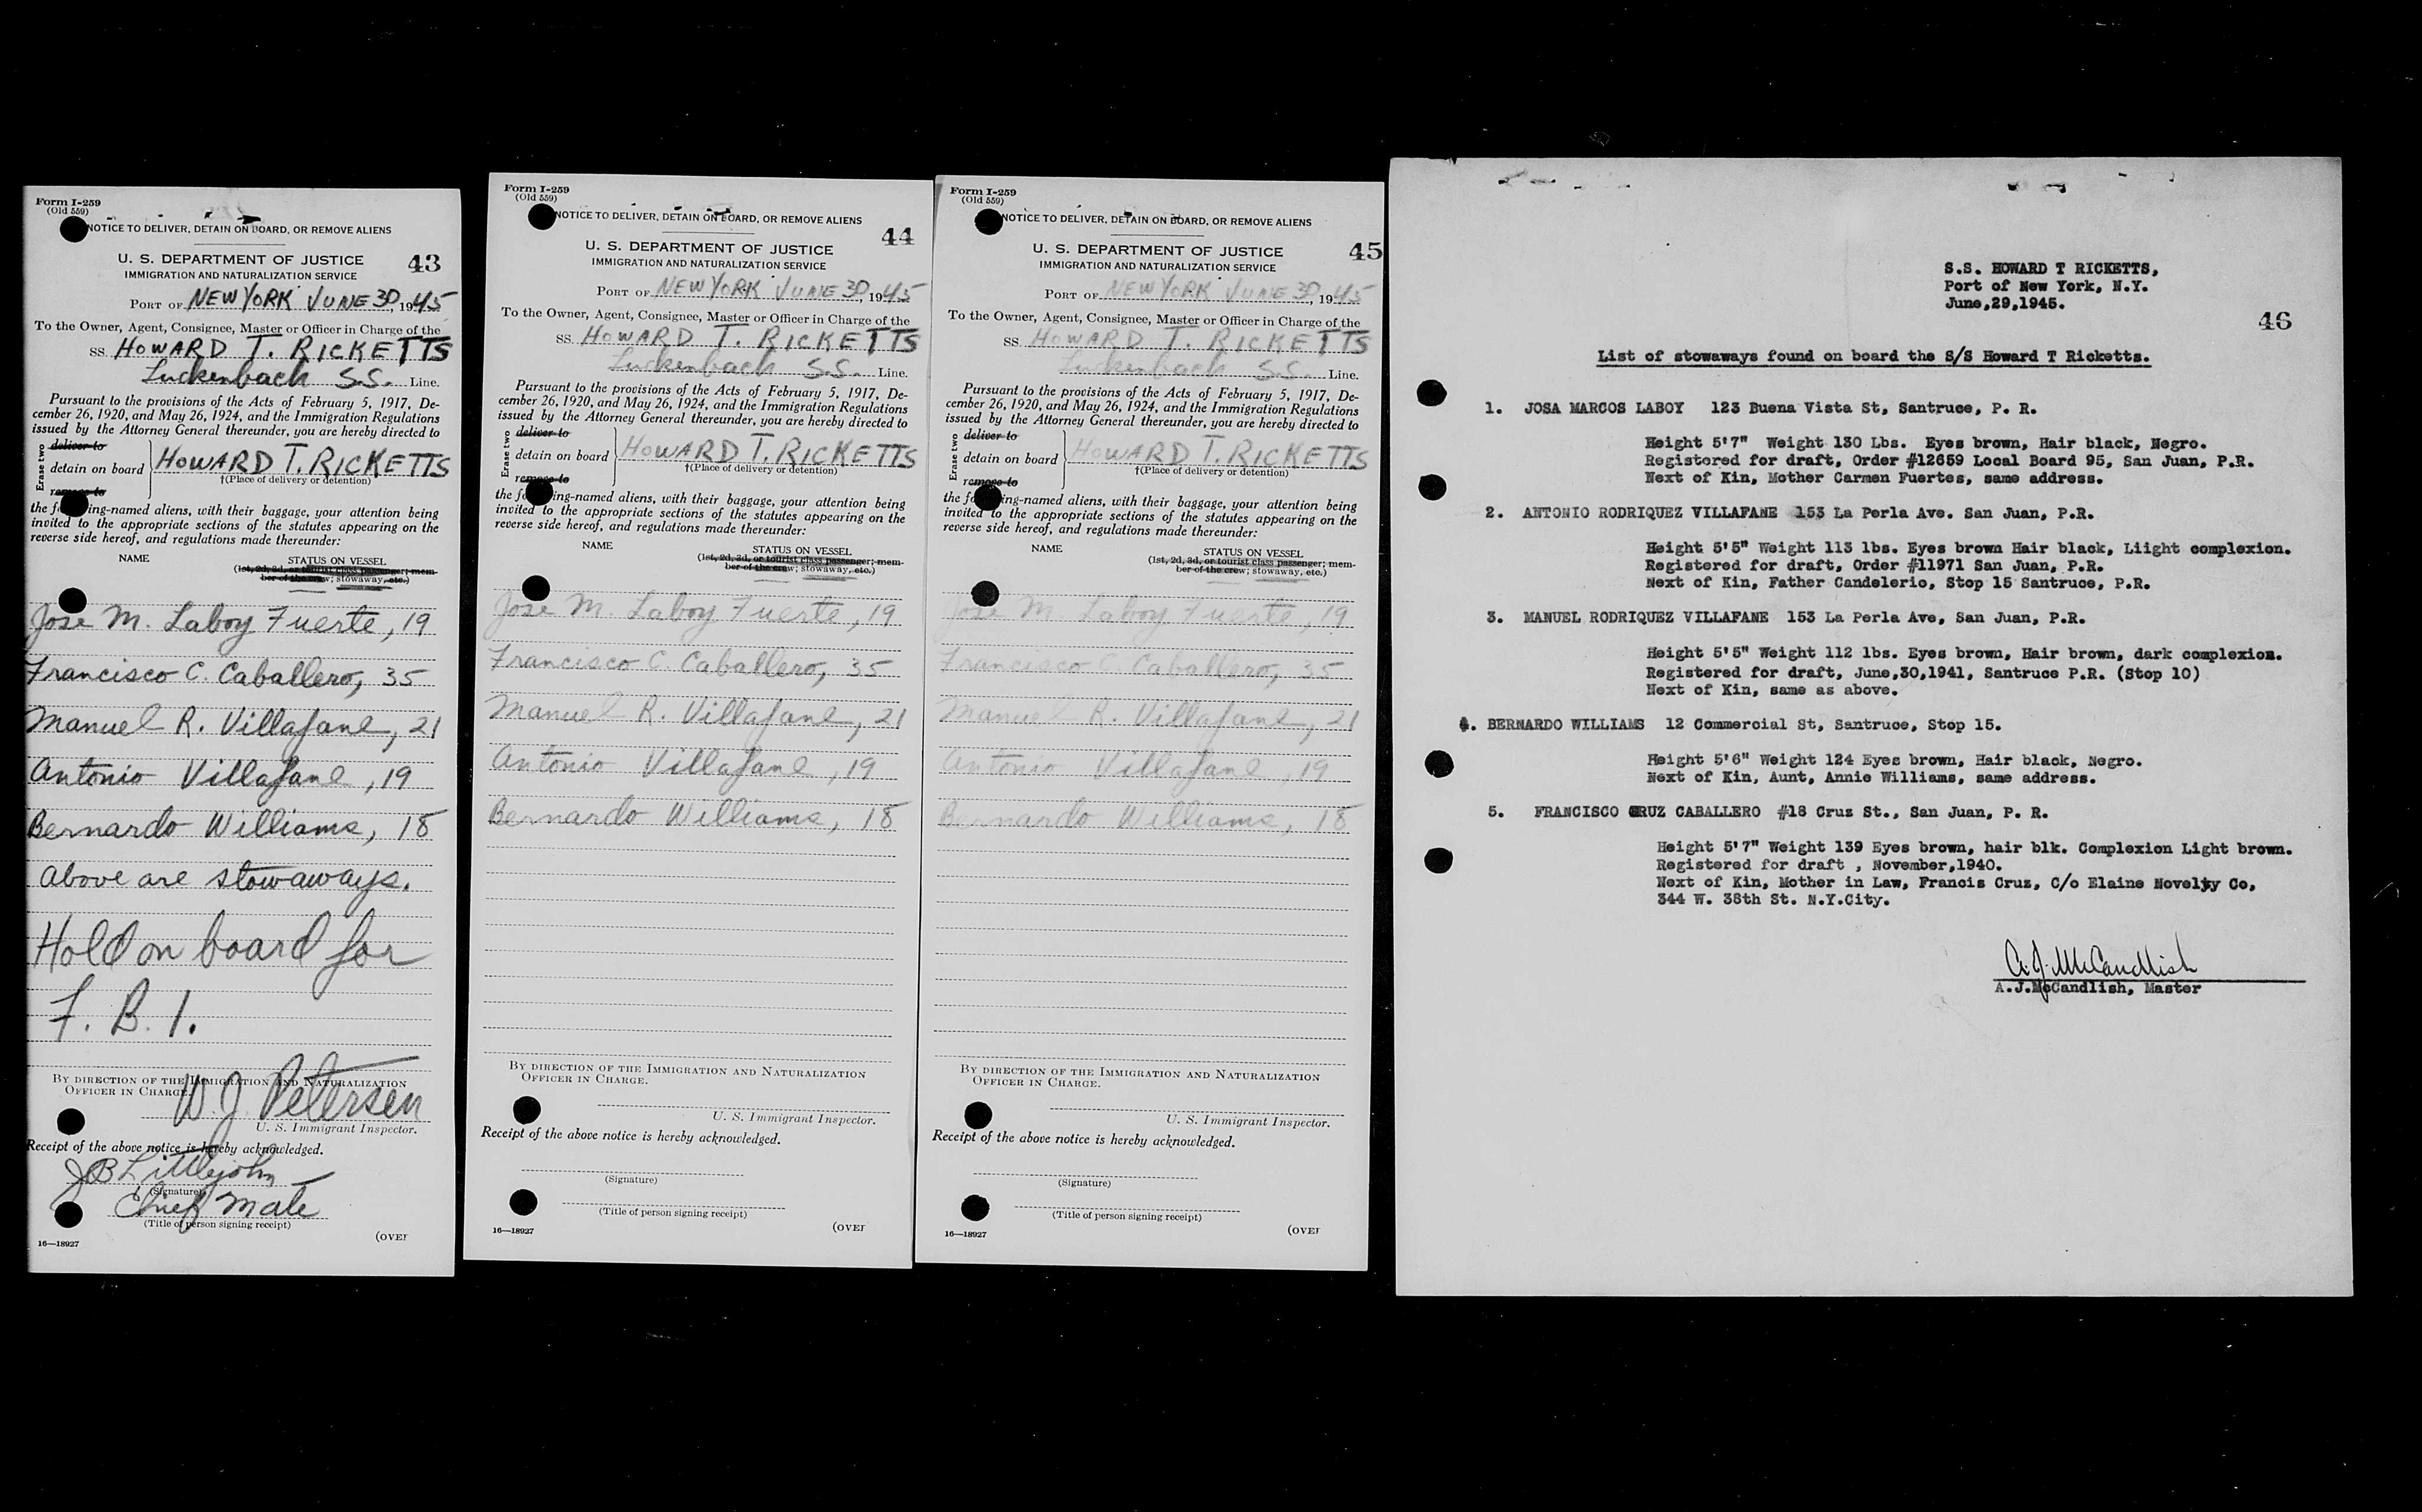 Form I-259
(Old 559)
NOTICE TO DELIVER, DETAIN ON BOARD, OR REMOVE ALIENS
43
U. S. DEPARTMENT OF JUSTICE
IMMIGRATION AND NATURALIZATION SERVICE
PORT OF NEW YORK JUNE 30, 1945
To the Owner, Agent, Consignee, Master or Officer in Charge of the
SS. HOWARD T. RICKETTS
Luckenbach S.S. Line.
Pursuant to the provisions of the Acts of February 5, 1917, De-
cember 26, 1920, and May 26, 1924, and the Immigration Regulations
issued by the Attorney General thereunder, you are hereby directed to
Erase two
deliver to
detain on board HOWARD T. RICKETTS
remove to
†(Place of delivery or detention)
the fo ing-named aliens, with their baggage, your attention being
invited to the appropriate sections of the statutes appearing on the
reverse side hereof, and regulations made thereunder:
NAME
STATUS ON VESSEL
(1st, 2d, 3d, or tourist class passenger; mem-
ber of the crew; stowaway, etc.)
Jose M. Laboy Fuerte, 19
Francisco C. Caballero, 35
Manuel R. Villafane, 21
Antonio Villafane, 19
Bernardo Williams, 18
above are stowaways.
Hold on board for
F. B. I.
BY DIRECTION OF THE IMMIGRATION AND NATURALIZATION
OFFICER IN CHARGE.
W. J. Petersen
U. S. Immigrant Inspector.
Receipt of the above notice is hereby acknowledged.
JB Littlejohn
(Signature)
Chief Mate
(Title of person signing receipt)
16—18927
(OVER
Form I-259
(Old 559)
NOTICE TO DELIVER, DETAIN ON BOARD, OR REMOVE ALIENS
44
U. S. DEPARTMENT OF JUSTICE
IMMIGRATION AND NATURALIZATION SERVICE
PORT OF NEW YORK JUNE 30, 1945
To the Owner, Agent, Consignee, Master or Officer in Charge of the
SS. HOWARD T. RICKETTS
Luckenbach S.S. Line.
Pursuant to the provisions of the Acts of February 5, 1917, De-
cember 26, 1920, and May 26, 1924, and the Immigration Regulations
issued by the Attorney General thereunder, you are hereby directed to
Erase two
deliver to
detain on board HOWARD T. RICKETTS
remove to
†(Place of delivery or detention)
the fo ing-named aliens, with their baggage, your attention being
invited to the appropriate sections of the statutes appearing on the
reverse side hereof, and regulations made thereunder:
NAME
STATUS ON VESSEL
(1st, 2d, 3d, or tourist class passenger; mem-
ber of the crew; stowaway, etc.)
Jose M. Laboy Fuerte, 19
Francisco C. Caballero, 35
Manuel R. Villafane, 21
Antonio Villafane, 19
Bernardo Williams, 18
BY DIRECTION OF THE IMMIGRATION AND NATURALIZATION
OFFICER IN CHARGE.
U. S. Immigrant Inspector.
Receipt of the above notice is hereby acknowledged.
(Signature)
(Title of person signing receipt)
16—18927
(OVER
Form I-259
(Old 559)
NOTICE TO DELIVER, DETAIN ON BOARD, OR REMOVE ALIENS
45
U. S. DEPARTMENT OF JUSTICE
IMMIGRATION AND NATURALIZATION SERVICE
PORT OF NEW YORK JUNE 30, 1945
To the Owner, Agent, Consignee, Master or Officer in Charge of the
SS. HOWARD T. RICKETTS
Luckenbach S.S. Line.
Pursuant to the provisions of the Acts of February 5, 1917, De-
cember 26, 1920, and May 26, 1924, and the Immigration Regulations
issued by the Attorney General thereunder, you are hereby directed to
Erase two
deliver to
detain on board HOWARD T. RICKETTS
remove to
†(Place of delivery or detention)
the fo ing-named aliens, with their baggage, your attention being
invited to the appropriate sections of the statutes appearing on the
reverse side hereof, and regulations made thereunder:
NAME
STATUS ON VESSEL
(1st, 2d, 3d, or tourist class passenger; mem-
ber of the crew; stowaway, etc.)
Jose M. Laboy Fuerte, 19
Francisco C. Caballero, 35
Manuel R. Villafane, 21
Antonio Villafane, 19
Bernardo Williams, 18
BY DIRECTION OF THE IMMIGRATION AND NATURALIZATION
OFFICER IN CHARGE.
U. S. Immigrant Inspector.
Receipt of the above notice is hereby acknowledged.
(Signature)
(Title of person signing receipt)
16—18927
(OVER
S.S. HOWARD T RICKETTS,
Port of New York, N.Y.
June,29,1945.
46
List of stowaways found on board the S/S Howard T Ricketts.
1. JOSA MARCOS LABOY 123 Buena Vista St, Santruce, P. R.
Height 5'7" Weight 130 Lbs. Eyes brown, Hair black, Negro.
Registered for draft, Order #12659 Local Board 95, San Juan, P.R.
Next of Kin, Mother Carmen Fuertes, same address.
2. ANTONIO RODRIQUEZ VILLAFANE 153 La Perla Ave. San Juan, P.R.
Height 5'5" Weight 113 lbs. Eyes brown Hair black, Liight complexion.
Registered for draft, Order #11971 San Juan, P.R.
Next of Kin, Father Candelerio, Stop 15 Santruce, P.R.
3. MANUEL RODRIQUEZ VILLAFANE 153 La Perla Ave, San Juan, P.R.
Height 5'5" Weight 112 lbs. Eyes brown, Hair brown, dark complexion.
Registered for draft, June,30,1941, Santruce P.R. (Stop 10)
Next of Kin, same as above.
4. BERNARDO WILLIAMS 12 Commercial St, Santruce, Stop 15.
Height 5'6" Weight 124 Eyes brown, Hair black, Negro.
Next of Kin, Aunt, Annie Williams, same address.
5. FRANCISCO CRUZ CABALLERO #18 Cruz St., San Juan, P. R.
Height 5'7" Weight 139 Eyes brown, hair blk. Complexion Light brown.
Registered for draft , November,1940.
Next of Kin, Mother in Law, Francis Cruz, C/o Elaine Novelty Co,
344 W. 38th St. N.Y.City.
A.J. McCandlish
A.J.McCandlish, Master